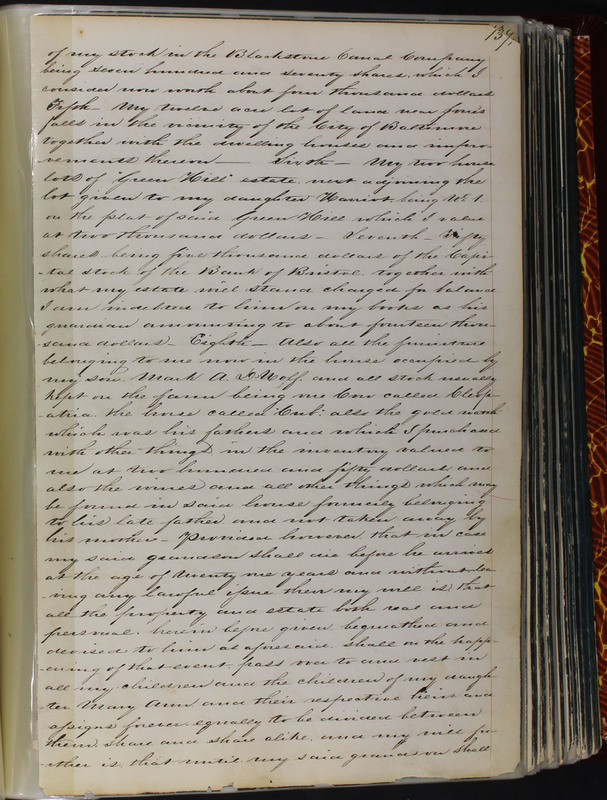 139.
of my stock in the Blackstone Canal Company
being seven hundred and seventy shares, which I
consider now worth about four thousand dollars
Fifth - My twelve acre lot of land near Jones's
falls in the vicinity of the City of Baltimore
together with the dwelling houses and impro-
vements thereon - Sixth - My two house
lots of "Green Hill" estate, next adjoining the
lot given to my daughter Harriot, being No. 1.
on the plat of said Green Hill which I value
at two thousand dollars - Seventh - Fifty
shares being five thousand dollars of the Capi-
-tal stock of the Bank of Bristol, together with
what my estate will stand charged for balance
I am indebted to him on my books as his
guardian amounting to about fourteen thou-
sand dollars - Eighth - Also all the furniture
belonging to me now in the house occupied by
my son Mark A. D'Wolf, and all stock usually
kept on the farm being one Cow called Cleop-
-atria, the horse called Cub; also the gold watch
which was his fathers and which I purchased
with other things in the inventory valued to
me at two hundred and fifty dollars and
also the wines and all other things which may
be found in said house formerly belonging
to his late father and not taken away by
his mother - Provided however, that in case
my said grandson shall die before he arrives
at the age of twenty one years and without lea-
ving any lawful issue then my will is, that
all the property and estate both real and
personal, herein before given, bequeathed and
devised to him as aforesaid, shall on the happ-
-ening of that event, pass over to and vest in
all my children and the children of my daugh-
ter Mary Ann and their respective heirs and
assigns forever equally to be divided between
them, share and share alike, and my will fur-
ther is, that until my said grandson shall